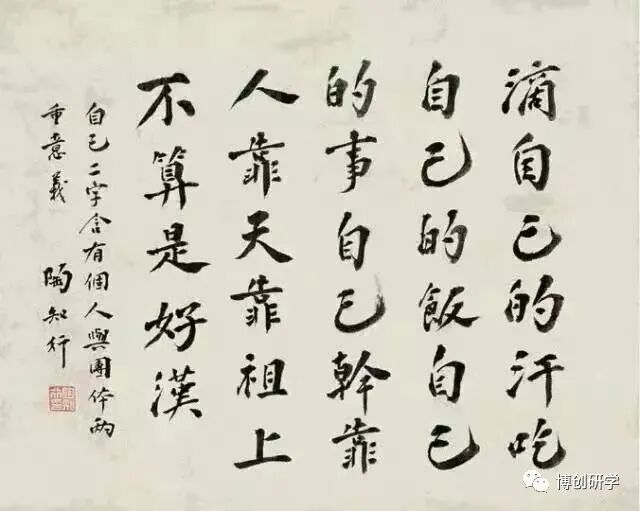 滴自己的汗吃
自己的飯自己
的事自己幹靠
人靠天靠祖上
不算是好漢
自己二字含有個人與團体兩
重意義 陶知行
博创研学